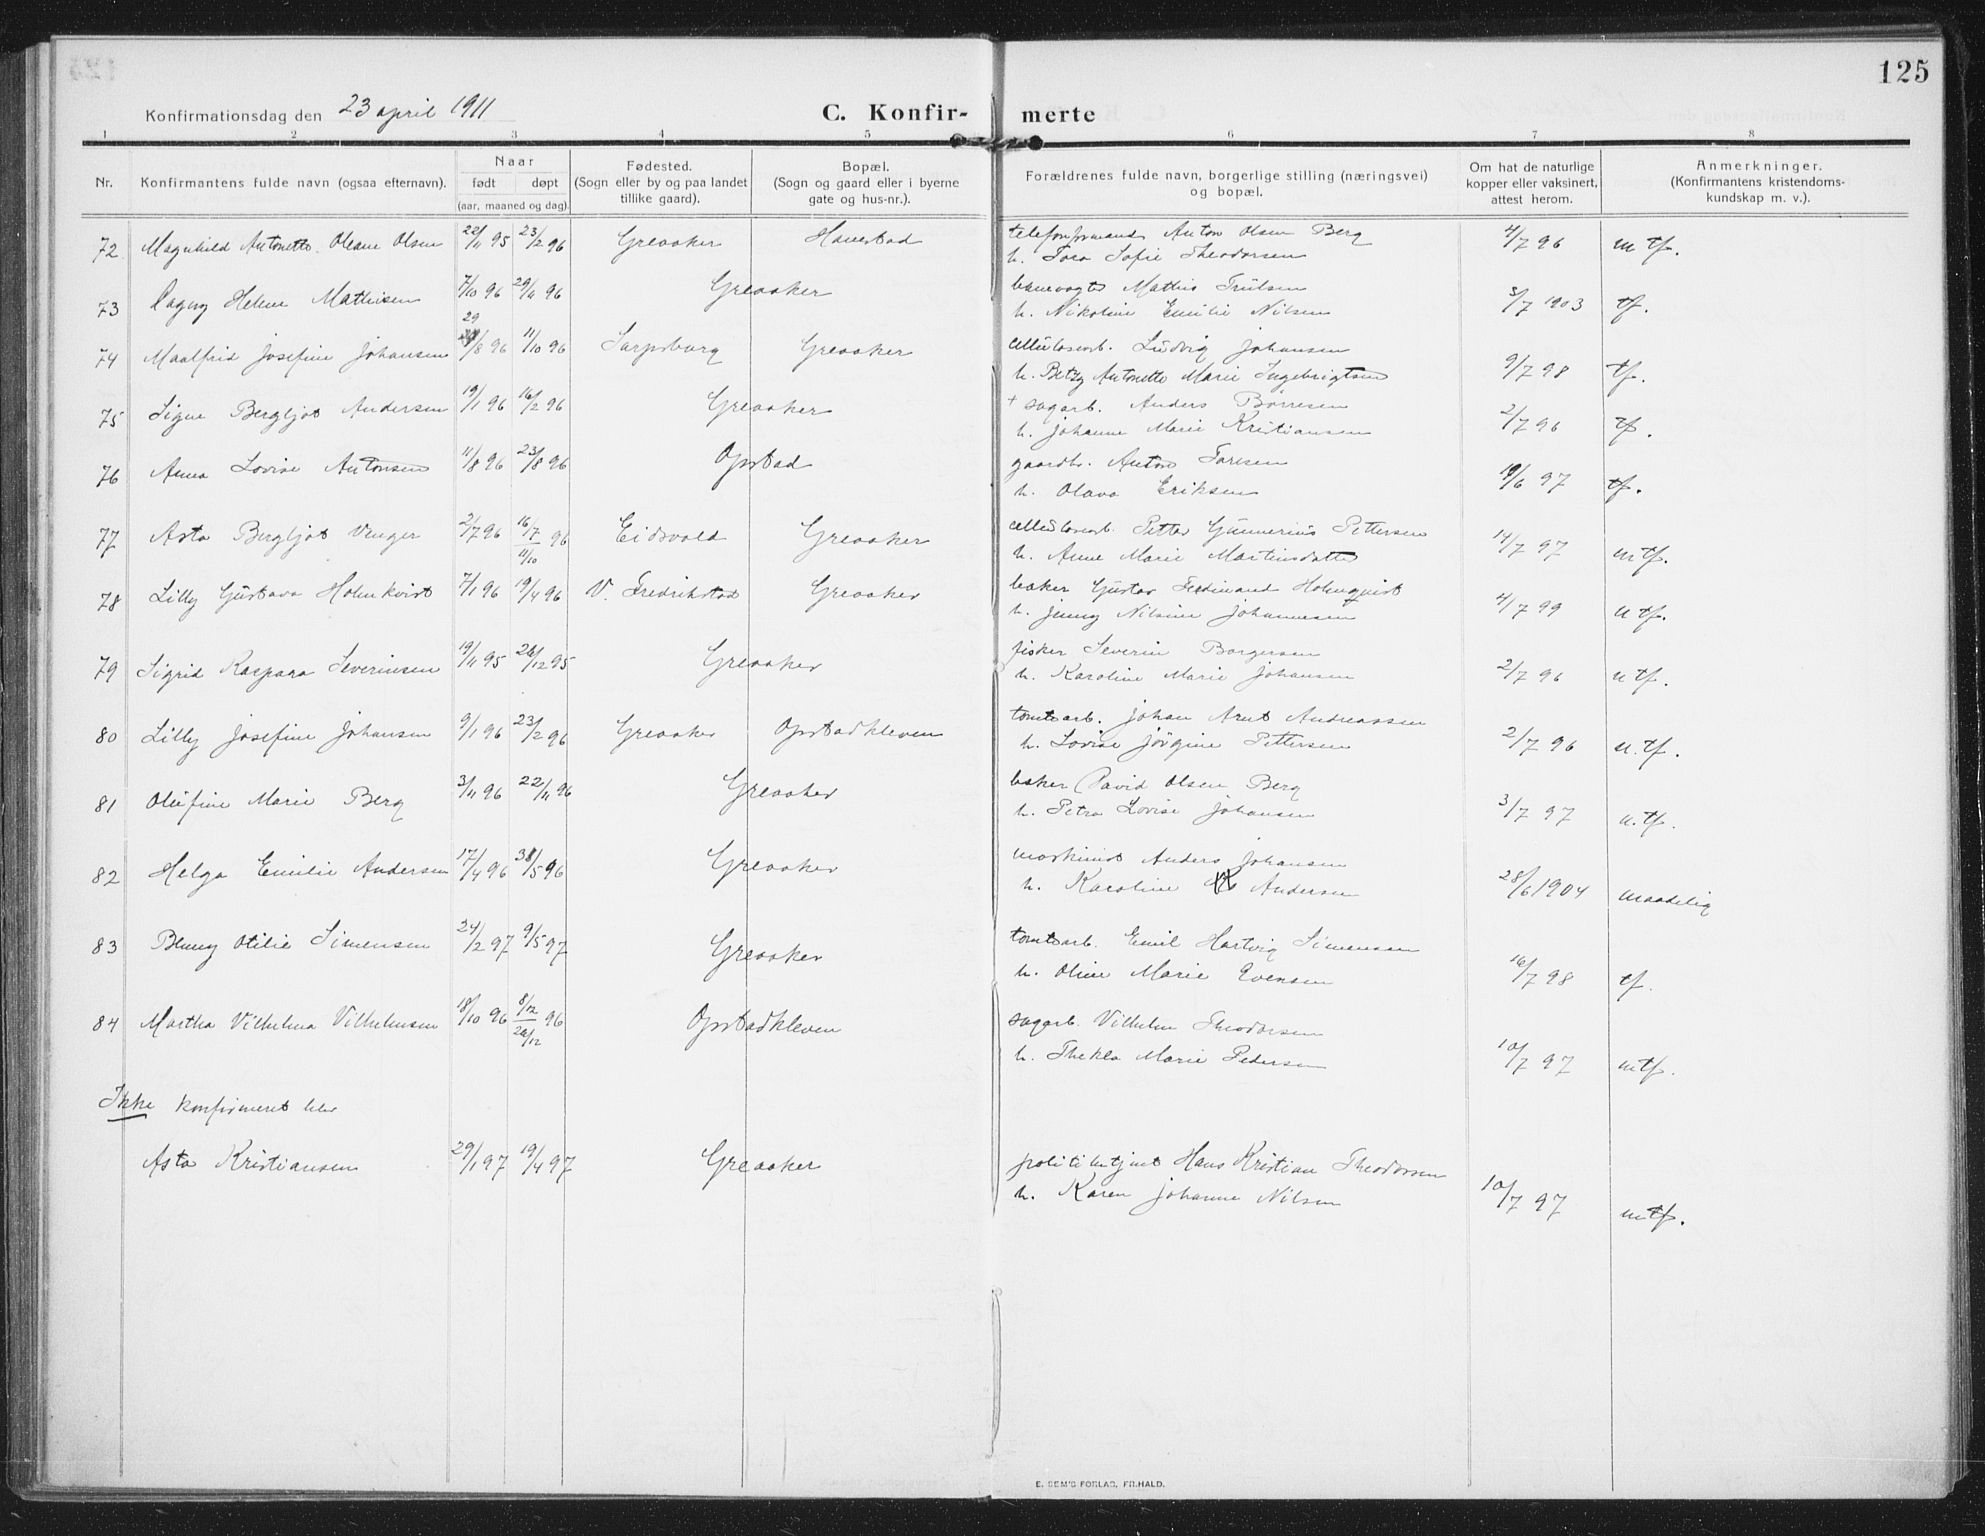 125
Konfirmationsdag den 23 april 1911
C. Konfir- merte
1 2 3 4 5 6 7 8
Nr.
Konfirmantens fulde navn (ogsaa efternavn).
Naar
født døpt
(aar, maaned og dag).
Fødested.
(Sogn eller by og paa landet
tillike gaard).
Bopæl.
(Sogn og gaard eller i byerne
gate og hus-nr.).
Forældrenes fulde navn, borgerlige stilling (næringsvei)
og bopæl.
Om hat de naturlige
kopper eller vaksinert,
attest herom.
Anmerkninger.
(Konfirmantens kristendoms-
kundskap m. v.).
72 Magnhild Antonette Oleane Olsen 22/11 95 23/2 96 Greaaker Hanestad telefonformand Anton Olsen Berg 4/7 96 mtf.
h. Tora Sofie Theodorsen
73 Dagny Helene Mathisen 7/10 96 29/11 96 Greaaker banevogter Mathis Trulsen 3/7 1903 tf.
h. Nikoline Emilie Nilsen
74 Maalfrid Josefine Johansen 29/8 96 11/10 96 Sarpsborg Greaaker cellulosearb. Ludvig Johansen 9/7 98 tf.
h. Betzy Antonette Marie Ingebrigtsen
75 Signe Bergljot Andersen 19/1 96 16/2 96 Greaaker + sagarb. Anders Børresen 2/7 96 tf.
h. Johanne Marie Kristiansen
76 Anna Lovise Antonsen 11/8 96 23/8 96 Opstad gaardbr. Anton Taresen 19/6 97 tf.
h. Olava Eriksen
77 Asta Bergljot Venger 2/7 96 16/7 96 11/10 Eidsvold Greaaker cellulosearb. Petter Gunnerius Pettersen 14/7 97 mtf.
h. Anne Marie Martinsdatter
78 Lilly Gustava Holmkvist 7/1 96 19/4 96 V. Fredrikstad Greaaker baker Gustav Ferdinand Holmquist 4/7 99 mtf.
h. Jenny Nilsine Johannesen
79 Sigrid Kaspara Severinsen 19/11 95 26/12 95 Greaaker fisker Severin Borgersen 2/7 96 mtf.
h. Karoline Marie Johansen
80 Lilly Josefine Johansen 9/1 96 23/2 96 Greaaker Opstadkleven tomtearb. Johan Arnt Andreassen 2/7 96 m.tf.
h. Lovise Jørgine Pettersen
81 Olufine Marie Berg 3/11 96 22/11 96 Greaaker baker David Olsen Berg 3/7 97 m.tf.
h. Petra Lovise Johansen
82 Helga Emilie Andersen 17/4 96 31/5 96 Greaaker maskinist Anders Johansen 28/6 1904 maadelig
h. Karoline Andersen
83 Benny Otilie Simensen 24/2 97 9/5 97 Greaaker tomtearb. Emil Hartvig Simensen 16/7 98 tf.
h. Oline Marie Evensen
84 Martha Vilhelma Vilhelmsen 18/10 96 8/12 96 26/12 Opstadkleven sagarb. Vilhelm Theodorsen 10/7 97 mtf.
h. Thekla Marie Pedersen
Ikke konfirmeret blev
Asta Kristiansen 29/1 97 19/4 97 Greaaker politibetjent Hans Kristian Theodorsen 10/7 97 mtf.
h. Karen Johanne Nilsen
E. SEM'S FORLAG, FR.HALD.